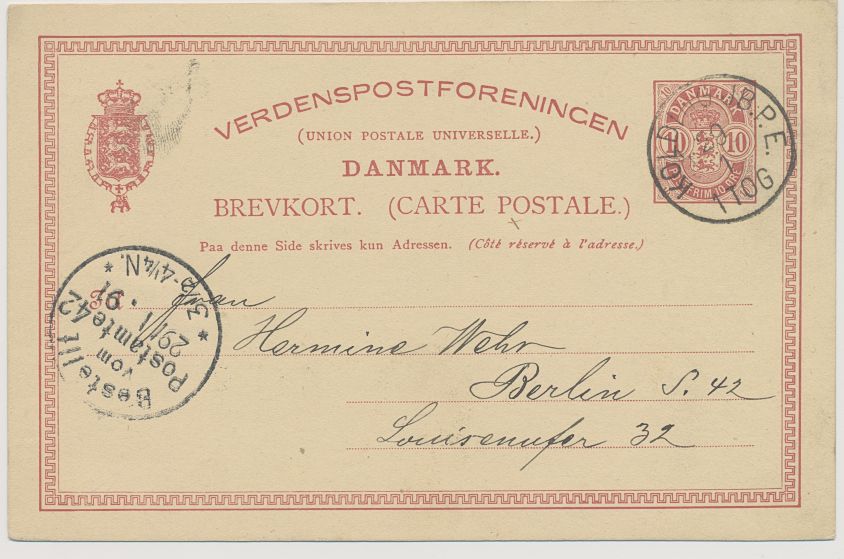 VERDENSPOSTFORENINGEN
(UNION POSTALE UNIVERSELLE.)
DANMARK.
BREVKORT. (CARTE POSTALE.)
Paa denne Side skrives kun Adressen. (Côté réservé à l'adresse.)
10
DANMARK
10 10
FRIM. 10 ØRE
J.B.P.E.
28
1
1 TOG
Til
Frau
Hermine Wehr
Berlin S. 42
Louisenufer 32
Bestellt
vom
Postamte 42
29/1 . 91
* 3-4¼N. *